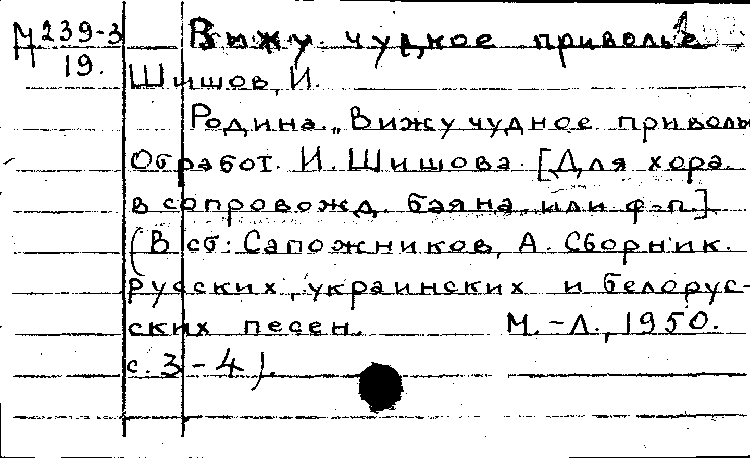 М 239-3 Вижу чудное приволье
19.
Шишов, И.
Родина. „Вижу чудное приволь
Обработ. И. Шишова. [Для хора
в сопровожд. баяна или ф-п.]
(В сб: Сапожников, А. Сборник
русских, украинских и белорус-
ских песен. М.-Л., 1950.
с. 3-4).